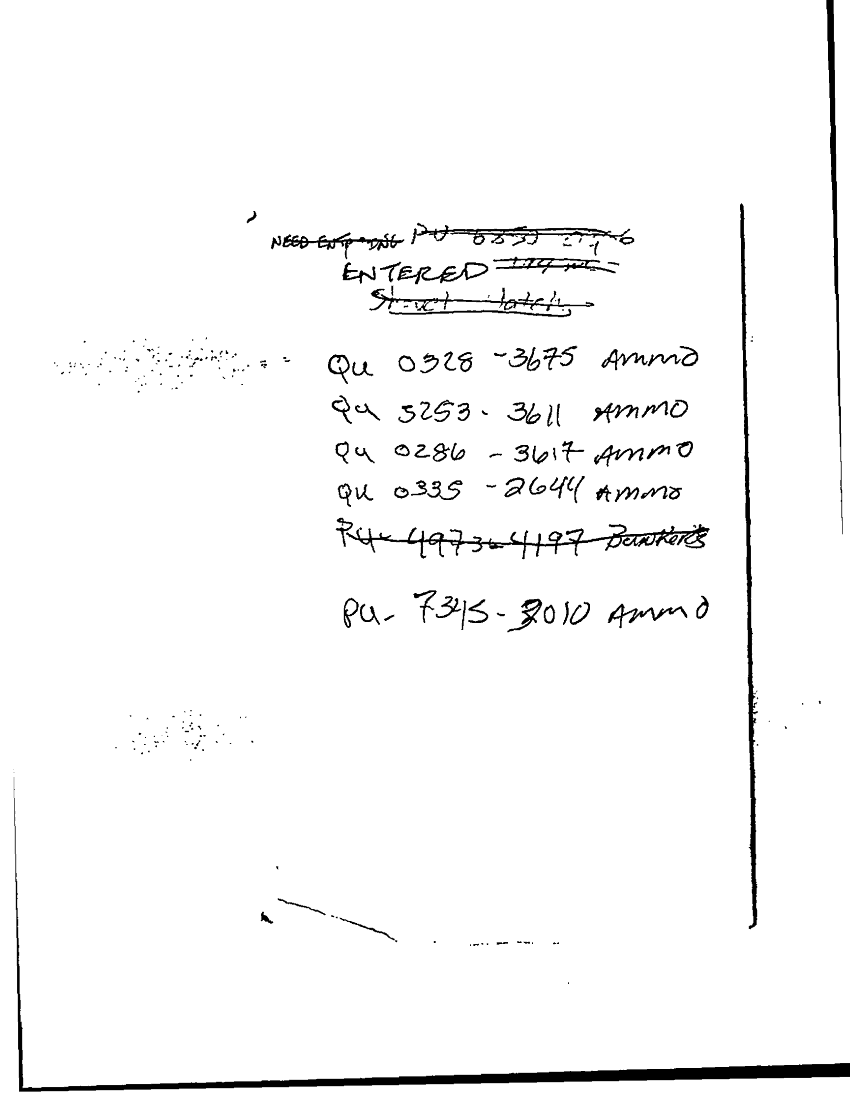 NEED PU
ENTERED
Qu 0328 - 3675 Ammo
Qu 5253 - 3611 Ammo
Qu 0286 - 3617 Ammo
Qu 0335 - 2644 Ammo
PU- 4973- 4197 Bunkers
PU- 7345- 2010 Ammo